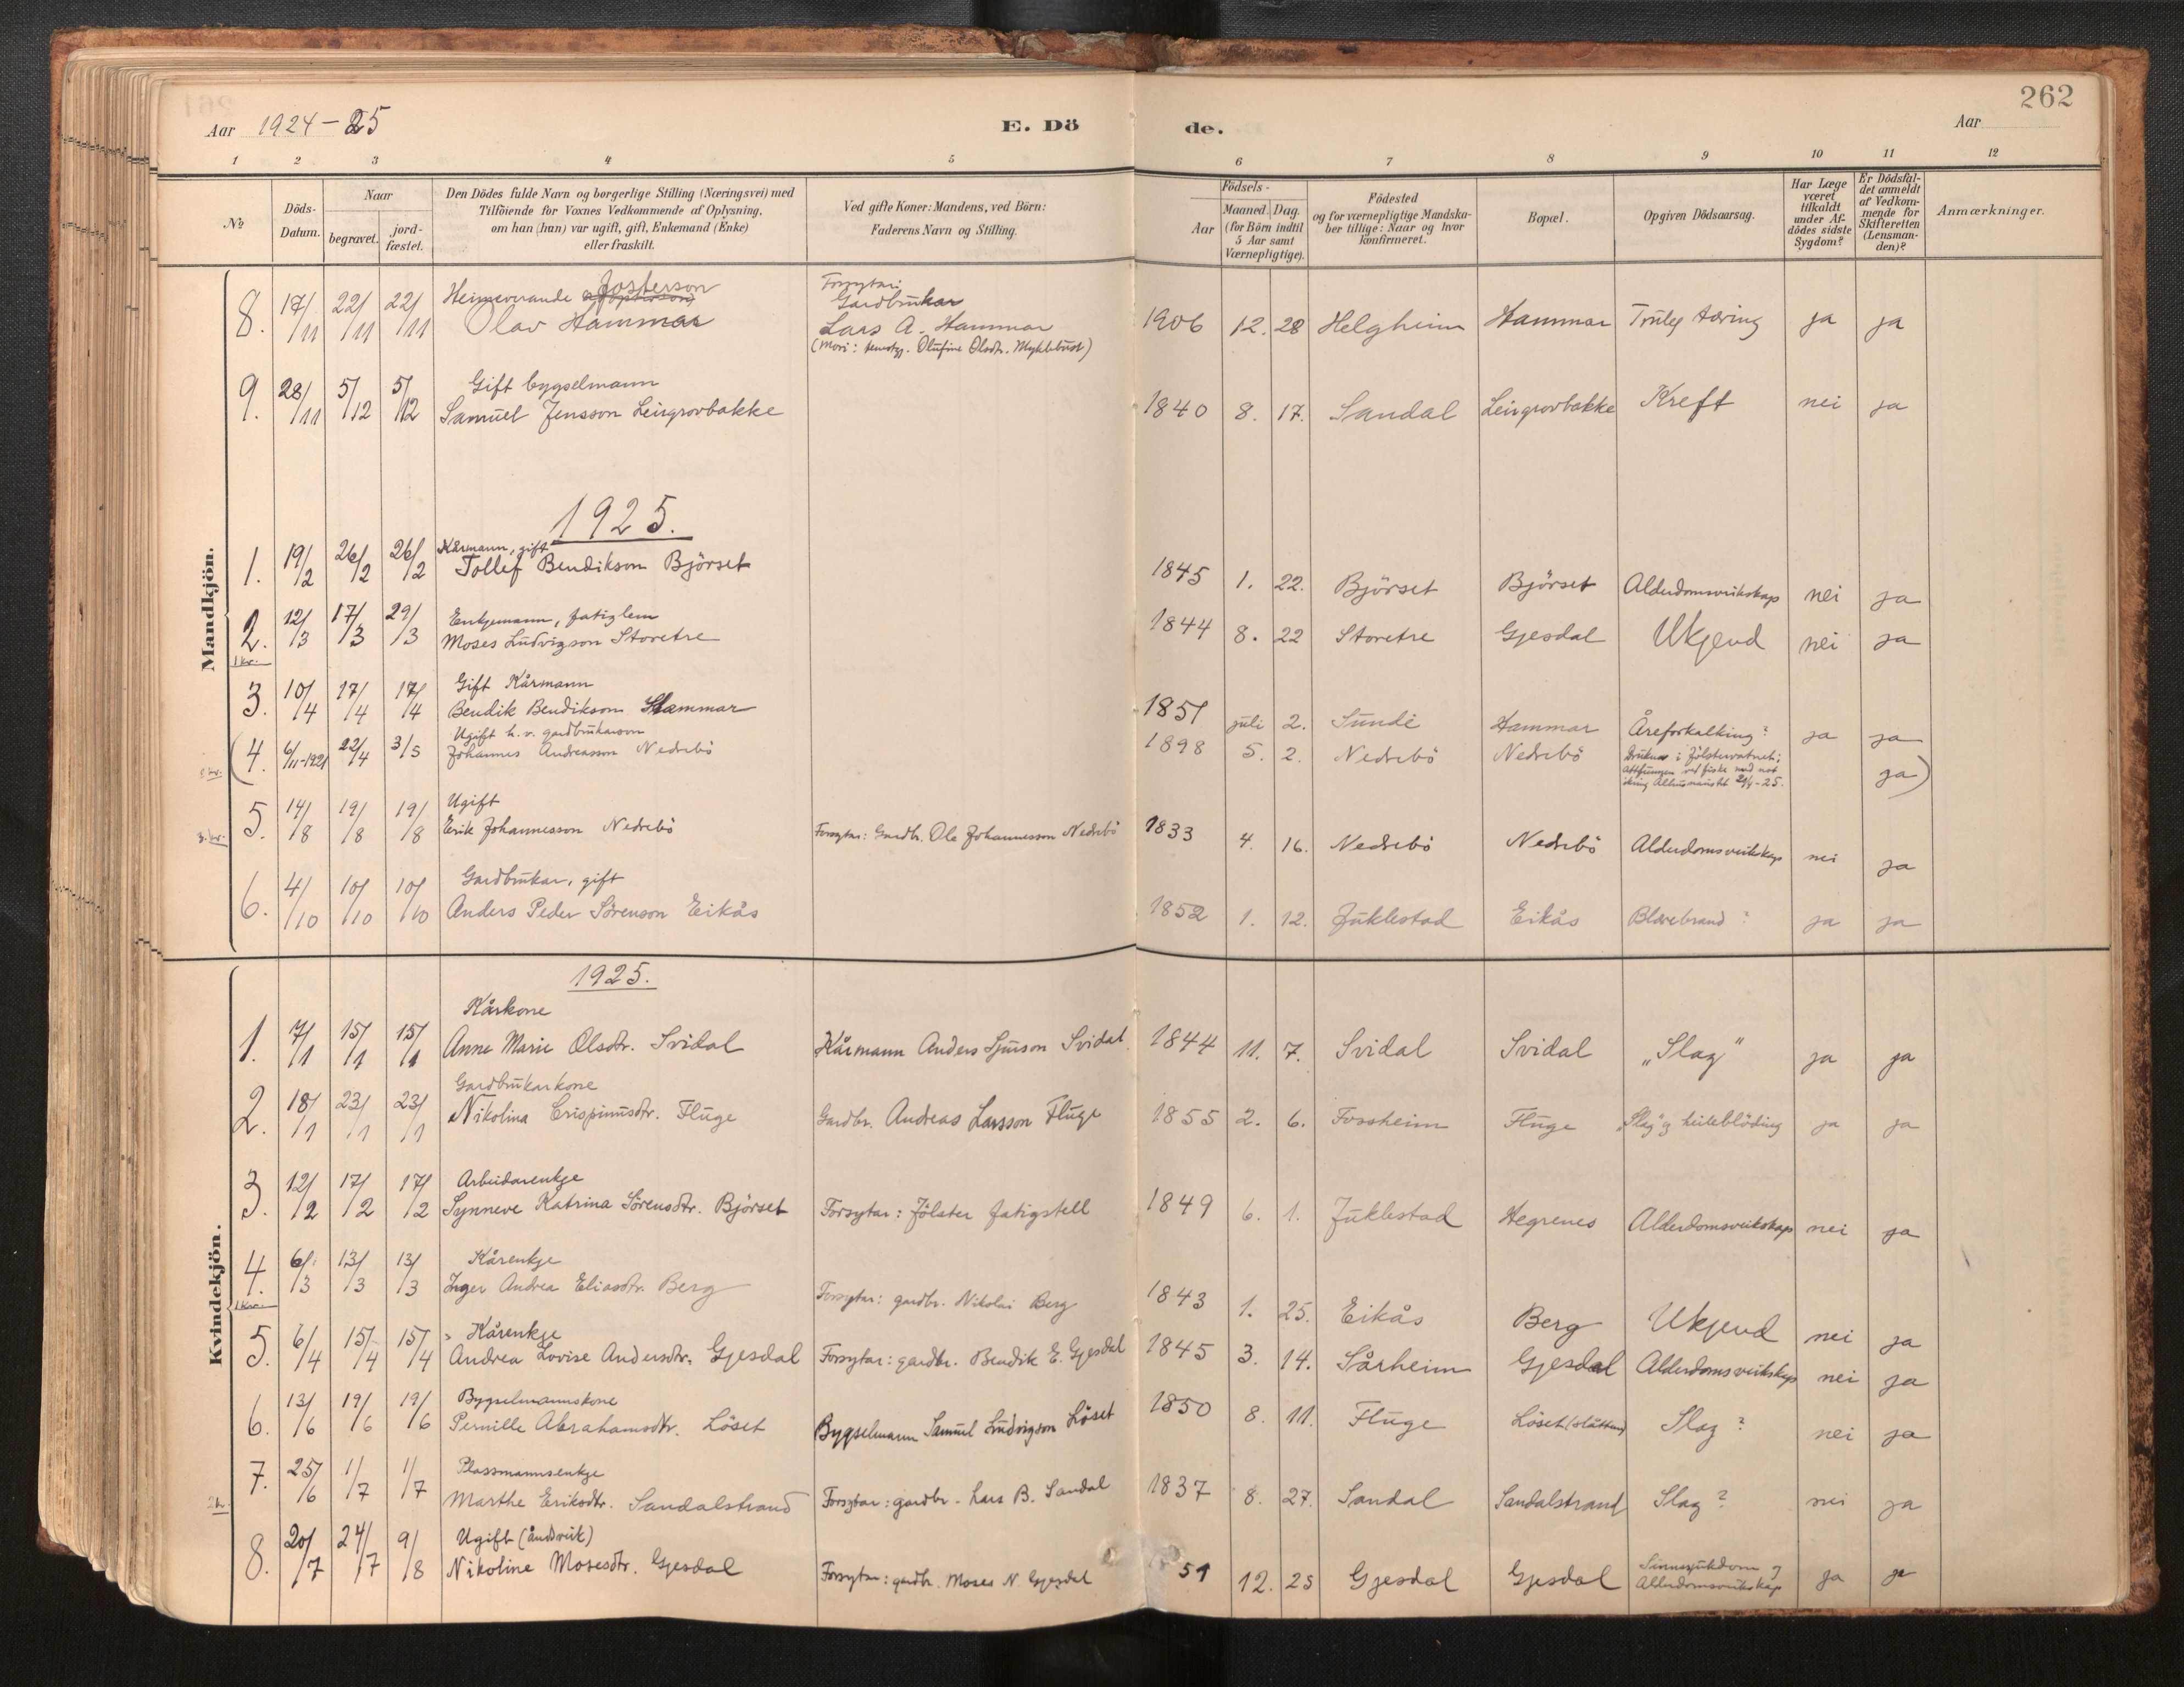 262
Aar 1924-25 E. Dö de. Aar
1 2 3 4 5 6 7 8 9 10 11 12
№
Döds-Datum.
Naar
begravet.
jord-fæstet.
Den Dödes fulde Navn og borgerlige Stilling (Næringsvei) med
Tilföiende for Voxnes Vedkommende af Oplysning,
om han (hun) var ugift, gift, Enkemand (Enke)
eller fraskilt.
Ved gifte Koner: Mandens, ved Börn:
Faderens Navn og Stilling.
Födsels-
Aar
Maaned. Dag.
(for Börn indtil
5 Aar samt
Værnepligtige).
Födested
og for værnepligtige Mandska-
ber tillige: Naar og hvor
konfirmeret.
Bopæl.
Opgiven Dödsaarsag.
Har Læge
været
tilkaldt
under Af-
dödes sidste
Sygdom?
Er Dödsfal-
det anmeldt
af Vedkom-
mende for
Skifteretten
(Lensman-
den)?
Anmærkninger.
Mandkjön.
Heimeverande fosterson Forsytar:
Gardbrukar
8. 17/11 22/11 22/11 Olav Hammar Lars A. Hammar 1906 12. 28 Helgheim Hammar Truleg tæring ja ja
(Mori: Olufine Olsdtr. Myklebust)
Gift bygselmann
9. 28/11 5/12 5/12 Samuel Jensson Leirgrovbakke 1840 8. 17. Sandal Leirgrovbakke Kreft nei ja
1925.
Kårmann, gift
1. 19/2 26/2 26/2 Tollef Bendikson Björset 1845 1. 22. Björset Björset Alderdomsveikskap nei ja
Enkjemann, fatiglem
2. 12/3 17/3 29/3 Moses Ludvigson Storetre 1844 8. 22 Storetre Gjesdal Ukjend nei ja
1 kv.
Gift Kårmann
3. 10/4 17/4 17/4 Bendik Bendikson Hammar 1851 juli 2. Sunde Hammar Åreforkalking? ja ja
Ugift h.v. gardbrukarson
(4. 6/11-1921 22/4 3/5 Johannes Andreasson Nedrebö 1898 5. 2. Nedrebö Nedrebö Drukna i Jölstervatnet; ja)
attfunnen ved fiske med not
21/4-25.
Ugift
3. kv. 5. 14/8 19/8 19/8 Erik Johannesson Nedrebö Forsytar: Gardbr. Ole Johannesson Nedrebö 1833 4. 16. Nedrebö Nedrebö Alderdomsveikskap nei ja
Gardbrukar, gift
6. 4/10 10/10 10/10 Anders Peder Sörenson Eikås 1852 1. 12. Juklestad Eikås Blærebrand? ja ja
Kvindekjön.
1925.
Kårkone
1. 7/1 15/1 15/1 Anne Marie Olsdtr. Svidal Kårmann Anders Sjurson Svidal 1844 11. 7. Svidal Svidal „Slag" ja ja
Gardbrukarkone
2. 18/1 23/1 23/1 Nikolina Crispinusdtr. Fluge Gardbr. Andreas Larsson Fluge 1855 2. 6. Fossheim Fluge „Slag" og heileblöding ja ja
Arbeidarenkje
3. 12/2 17/2 17/2 Synneve Katrina Sörensdtr. Björset Forsytar: Jölster fatigstell 1849 6. 1. Juklestad Hegrenes Alderdomsveikskap nei ja
Kårenkje
4. 6/3 13/3 13/3 Inger Andrea Eliasdtr. Berg Forsytar: gardbr. Nikolai Berg 1843 1. 25. Eikås Berg Ukjend nei ja
1 kv.
Kårenkje
5. 6/4 15/4 15/4 Andrea Lovise Andersdtr. Gjesdal Forsytar: gardbr. Bendik E. Gjesdal 1845 3. 14. Sårheim Gjesdal Alderdomsveikskap nei ja
Bygselmannskone
6. 13/6 19/6 19/6 Pernille Abrahamsdtr. Löset Bygselmann Samuel Ludvigson Löset 1850 8. 11. Fluge Löset (slåtten) Slag? nei ja
Plassmannsenkje
7. 25/6 1/7 1/7 Marthe Eriksdtr. Sandalstrand Forsytar: gardbr. Lars B. Sandal 1837 8. 27. Sandal Sandalstrand Slag? nei ja
2 kv.
Ugift (åndsveik)
8. 20/7 24/7 9/8 Nikoline Mosesdtr. Gjesdal Forsytar: gardbr. Moses N. Gjesdal 51 12. 25 Gjesdal Gjesdal Sinnssjukdom og ja ja
Alderdomsveikskap